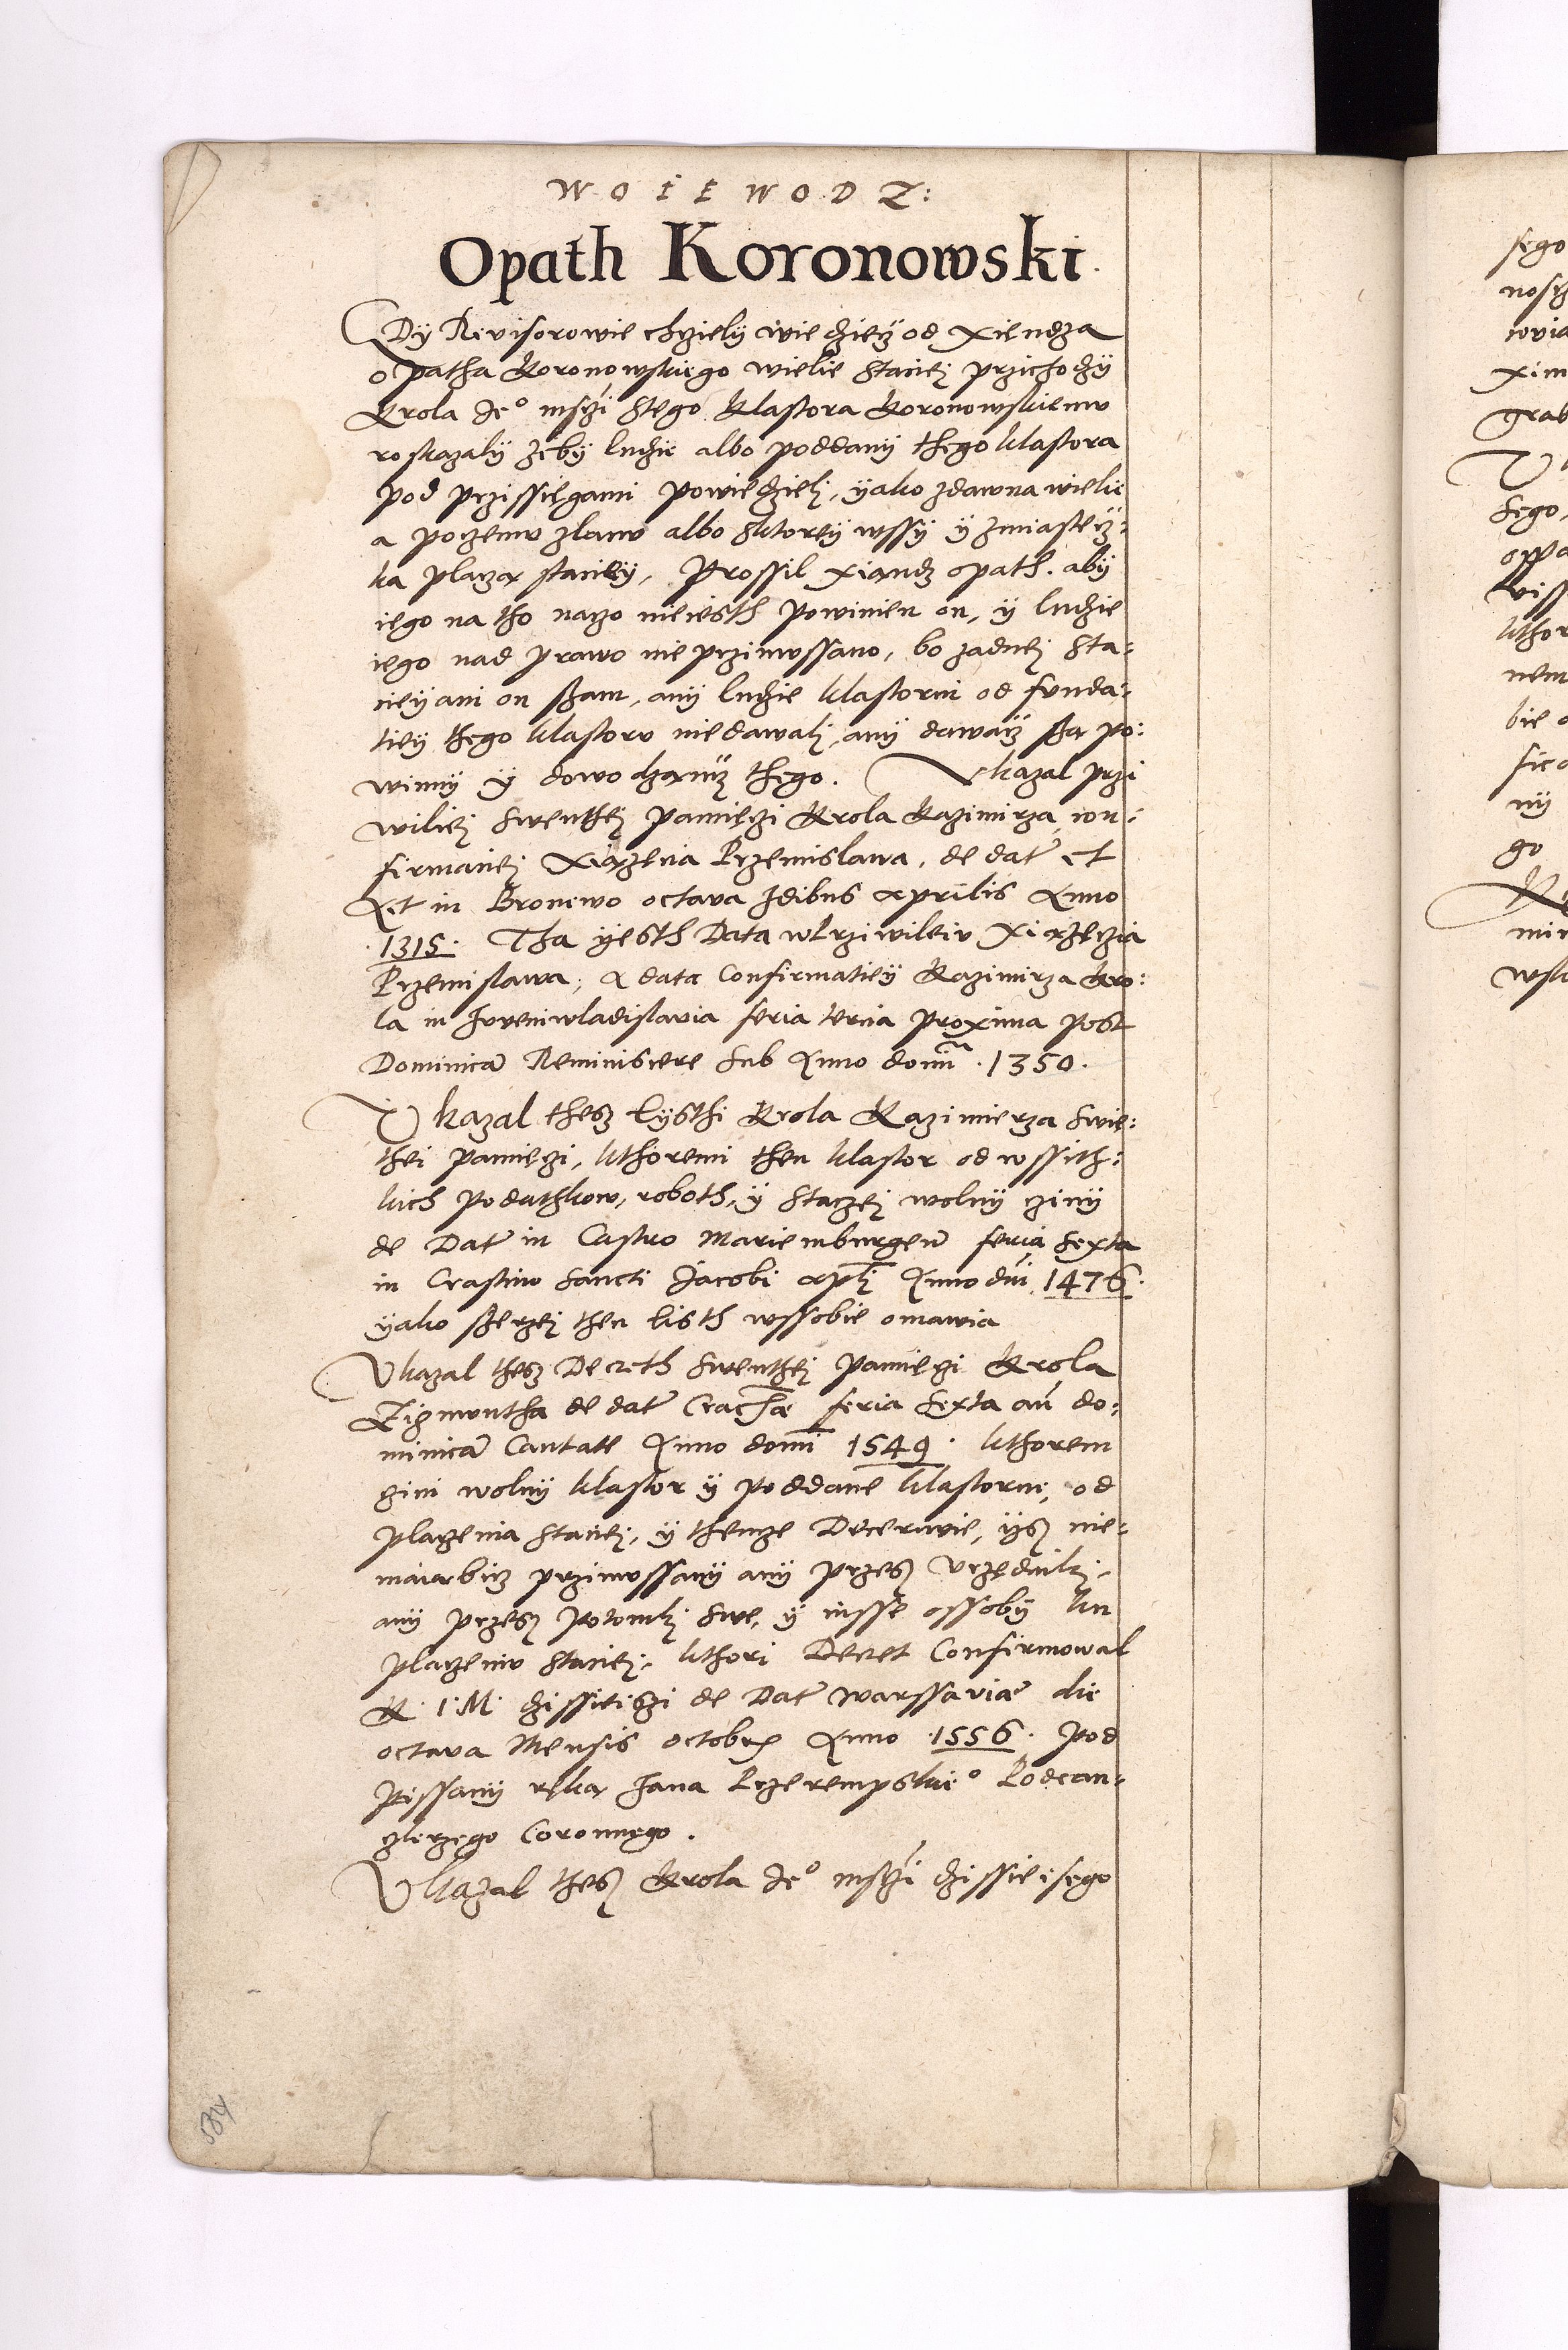 WOIEWODZ:
Opath Koronowski.
Gdÿ Revisorowie chczielÿ wiedzieÿ od xiendza
opatha Koronowskiego wielie Staciej przichodzÿ
Krola Je° msczi Stego Klastora Koronowskiemv
roskazalÿ zebÿ ludzie albo poddanÿ thego klastora
pod przissiegami powiedzielj, ÿako zdawna wielie
a poczemv zlanv albo Sktoreÿ wssÿ ÿ zmiastecz:
ka placza stacieÿ, Prossil xiandz opath. abÿ
iego na tho naczo nieiesth powinien on, ÿ ludzie
iego nad prawo nieprzimvssano, bo zadnej Sta:
cieÿ ani on szam, anÿ ludzie klastorni od funda:
tieÿ thego klastorv niedawalj, anÿ dawacz sza po:
winnÿ ÿ dowodzancz thego. Vkazal przi
wiliej Swenthej pamięczi Krola Kazimirza, con:
firmaciej Xiazecia Przemislawa, de dat et
Act in Bronewo octava Idibus Aprilis Anno
.1315. Tha ÿesth Data wPrziwileiv Xiazeczia
Przemislawa, A data Confirmatieÿ Kazimirza Kro:
la in Iuveniwladislavia feria tercia proxima post
Dominica Reminiscere Sub Anno domi .1350.
Vkazal thesz Lÿsthi Krola Kazimierza Swie:
thei pamięczi, kthoremi then klastor od wssith:
kich podathkow, roboth, ÿ Staczej wolnÿ czinÿ
de Dat in Castro Mariemburgen feria Sexta
in Crastino Sancti Jacobi apli Anno dni 1476.
ÿako szerzej then Listh wssobie omawia
Vkazal thesz Decreth Swenthej pamięczi Krola
Zigmuntha de dat Crachae feria Sexta an do:
minica Cantate Anno domi 1549. kthorem
czini wolnÿ klastor ÿ poddane klastorne, od
placzenia Staciej, ÿ themze Decernvie, ÿsz nie:
maiabicz przimvssanÿ anÿ przesz Vrzednikj,
anÿ przesz potomkj Swe, ÿ insse ossobÿ ku
placzeniv Staciej, kthori Decret Confirmowal
K. I. M. dzissieiszi de Dat Warssaviae die
octava Mensis octobr Anno .1556. Pod
pissanÿ ręka Jana Przerempskie° Podcan:
czlerzego Coronnego.
Vkazal thesz Krola Je° msczi dzissieisego
584